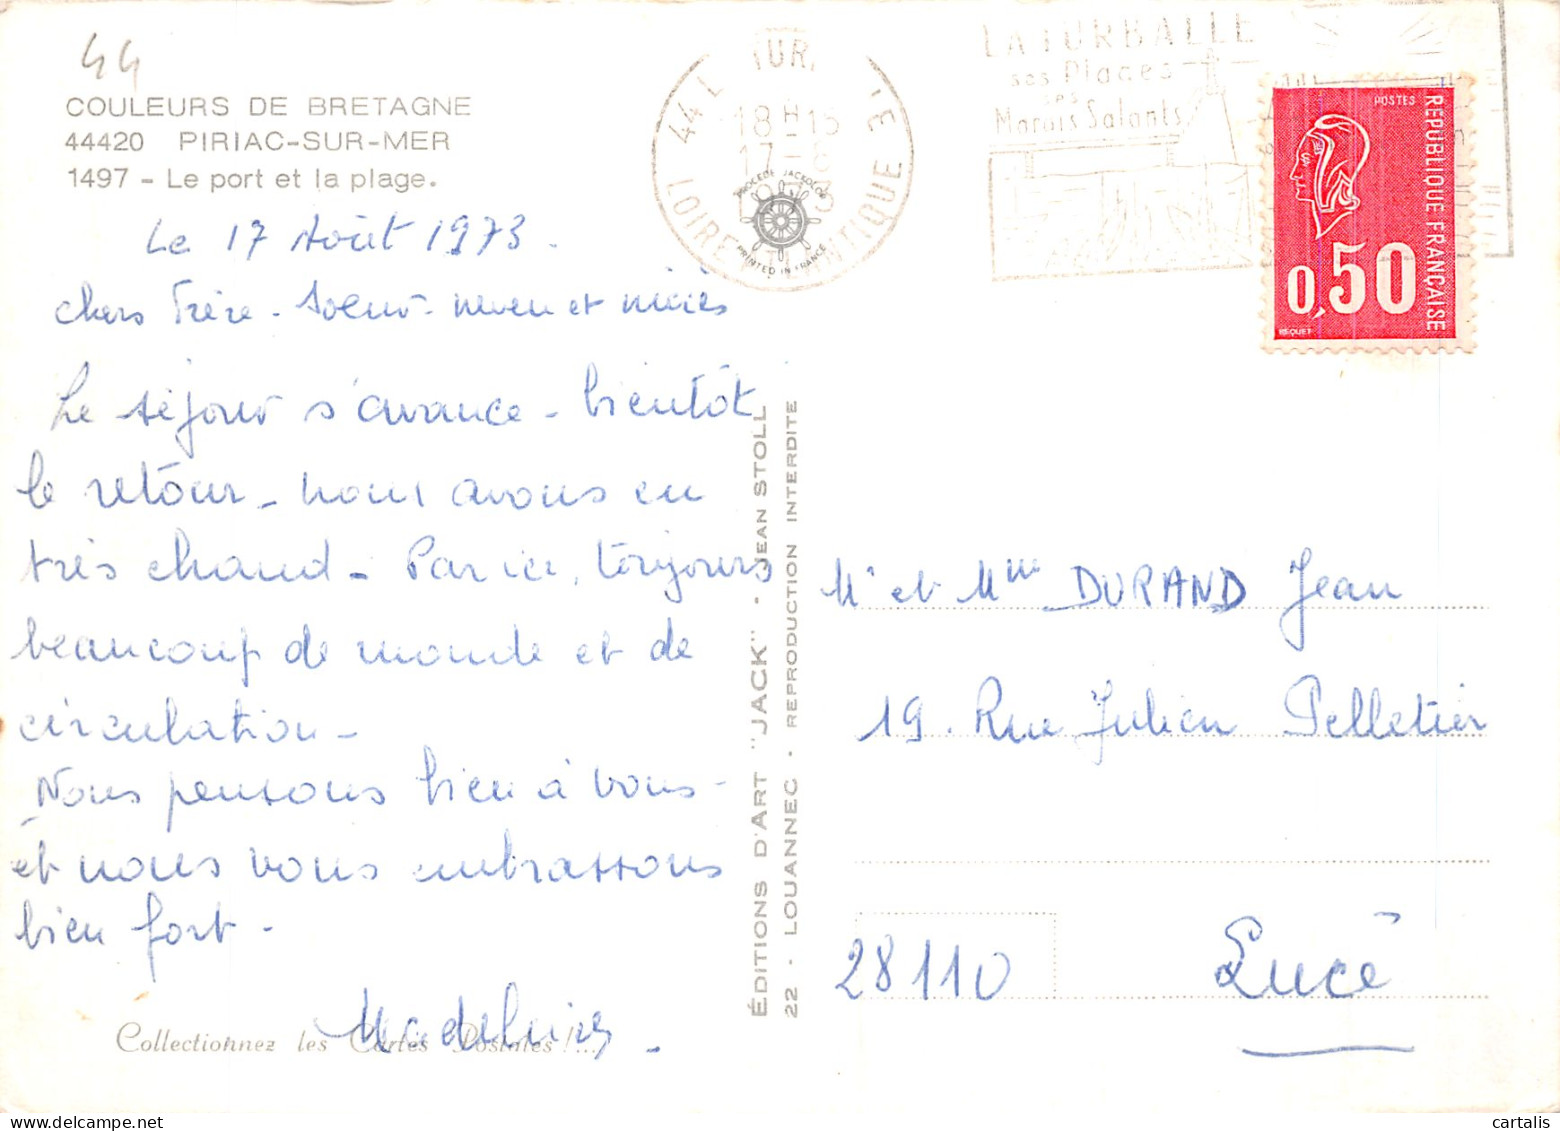 44
COULEURS DE BRETAGNE
44420 PIRIAC-SUR-MER
1497 - Le port et la plage.
Le 17 Août 1973.
Chers Frère - Soeur - neveu et nièces
Le séjour s'avance - bientôt
le retour - nous avons eu
très chaud - Par ici, toujours
beaucoup de monde et de
circulation -
Nous pensons bien à vous -
et nous vous embrassons
bien fort -
Collectionnez les Cartes Postales !...
ÉDITIONS D'ART "JACK" - JEAN STOLL
22 - LOUANNEC - REPRODUCTION INTERDITE
18H15
17-8
1973
LOIRE ATLANTIQUE
PROCÉDÉ JACKOLOR
PRINTED IN FRANCE
LA TURBALLE
ses Plages
ses
Marais Salants
POSTES
REPUBLIQUE FRANÇAISE
0,50
BEQUET
Mr et Mme DURAND Jean
19. Rue Julien Pelletier
28110 Lucé